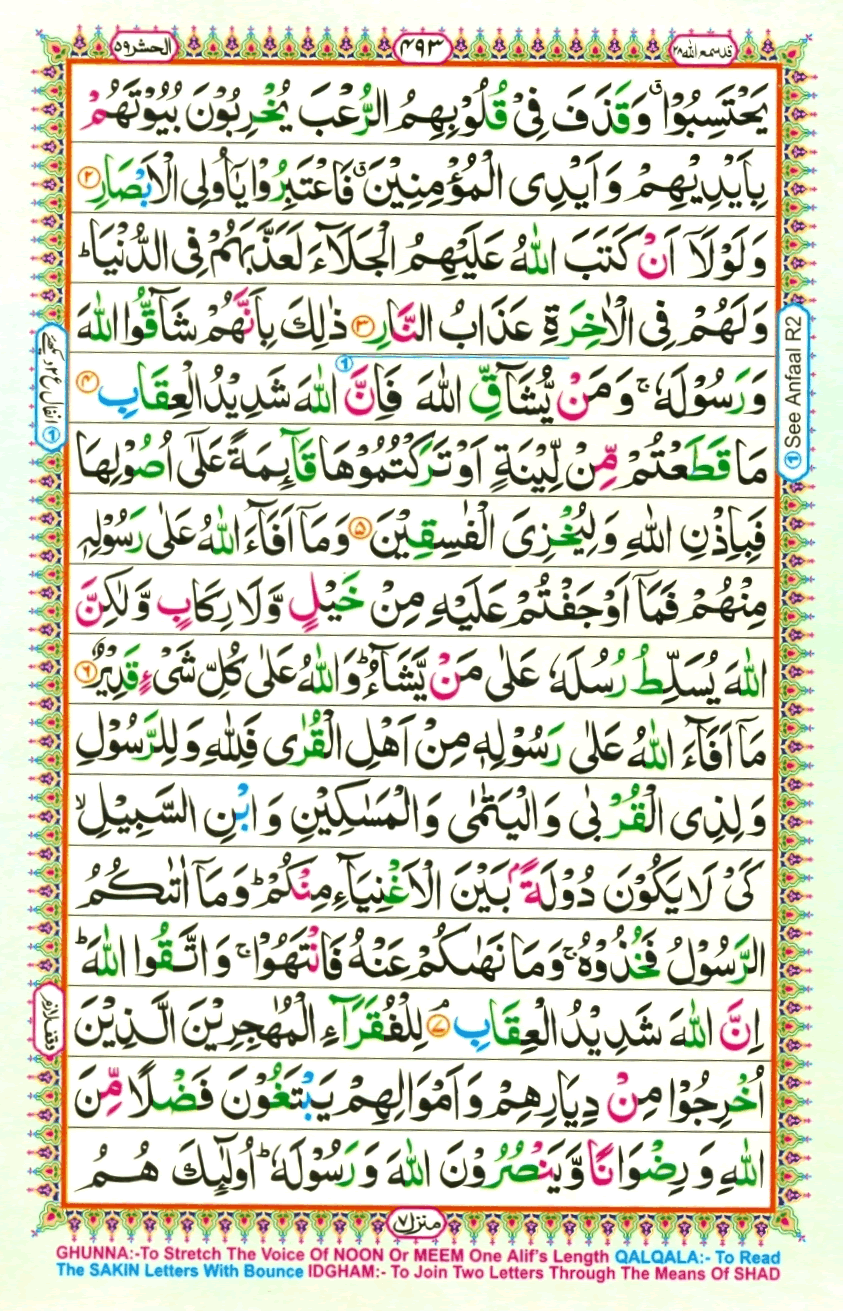 قد سمع الله ٢٨
٤٩٣
الحشر ٥٩
يَحْتَسِبُوْا ۗ وَقَذَفَ فِيْ قُلُوْبِهِمُ الرُّعْبَ يُخْرِبُوْنَ بُيُوْتَهُمْ
بِاَيْدِيْهِمْ وَاَيْدِى الْمُؤْمِنِيْنَ ۗ فَاعْتَبِرُوْا يٰۤاُولِى الْاَبْصَارِ ٢
وَلَوْلَاۤ اَنْ كَتَبَ اللّٰهُ عَلَيْهِمُ الْجَلَاۤءَ لَعَذَّبَهُمْ فِى الدُّنْيَا ؕ
وَلَهُمْ فِى الْاٰخِرَةِ عَذَابُ النَّارِ ٣ ذٰلِكَ بِاَنَّهُمْ شَآقُّوا اللّٰهَ
وَرَسُوْلَهٗ ۚ وَمَنْ يُّشَآقِّ اللّٰهَ فَاِنَّ اللّٰهَ شَدِيْدُ الْعِقَابِ ٤
مَا قَطَعْتُمْ مِّنْ لِّيْنَةٍ اَوْ تَرَكْتُمُوْهَا قَآئِمَةً عَلٰۤى اُصُوْلِهَا
فَبِاِذْنِ اللّٰهِ وَلِيُخْزِىَ الْفٰسِقِيْنَ ٥ وَمَاۤ اَفَآءَ اللّٰهُ عَلٰى رَسُوْلِهٖ
مِنْهُمْ فَمَاۤ اَوْجَفْتُمْ عَلَيْهِ مِنْ خَيْلٍ وَّلَا رِكَابٍ وَّلٰكِنَّ
اللّٰهَ يُسَلِّطُ رُسُلَهٗ عَلٰى مَنْ يَّشَآءُ ؕ وَاللّٰهُ عَلٰى كُلِّ شَىْءٍ قَدِيْرٌ ٦
مَاۤ اَفَآءَ اللّٰهُ عَلٰى رَسُوْلِهٖ مِنْ اَهْلِ الْقُرٰى فَلِلّٰهِ وَلِلرَّسُوْلِ
وَلِذِى الْقُرْبٰى وَالْيَتٰمٰى وَالْمَسٰكِيْنِ وَابْنِ السَّبِيْلِ ۙ
كَىْ لَا يَكُوْنَ دُوْلَةًۢ بَيْنَ الْاَغْنِيَآءِ مِنْكُمْ ؕ وَمَاۤ اٰتٰىكُمُ
الرَّسُوْلُ فَخُذُوْهُ ۚ وَمَا نَهٰىكُمْ عَنْهُ فَانْتَهُوْا ۚ وَاتَّقُوا اللّٰهَ ؕ
اِنَّ اللّٰهَ شَدِيْدُ الْعِقَابِ ۘ ٧ لِلْفُقَرَآءِ الْمُهٰجِرِيْنَ الَّذِيْنَ
اُخْرِجُوْا مِنْ دِيَارِهِمْ وَاَمْوَالِهِمْ يَبْتَغُوْنَ فَضْلًا مِّنَ
اللّٰهِ وَرِضْوَانًا وَّيَنْصُرُوْنَ اللّٰهَ وَرَسُوْلَهٗ ؕ اُولٰٓئِكَ هُمُ
١ See Anfaal R2
١ انفال ع٢ دیکھئے
وقف لازم
منزل ٧
GHUNNA:-To Stretch The Voice Of NOON Or MEEM One Alif's Length QALQALA:- To Read
The SAKIN Letters With Bounce IDGHAM:- To Join Two Letters Through The Means Of SHAD